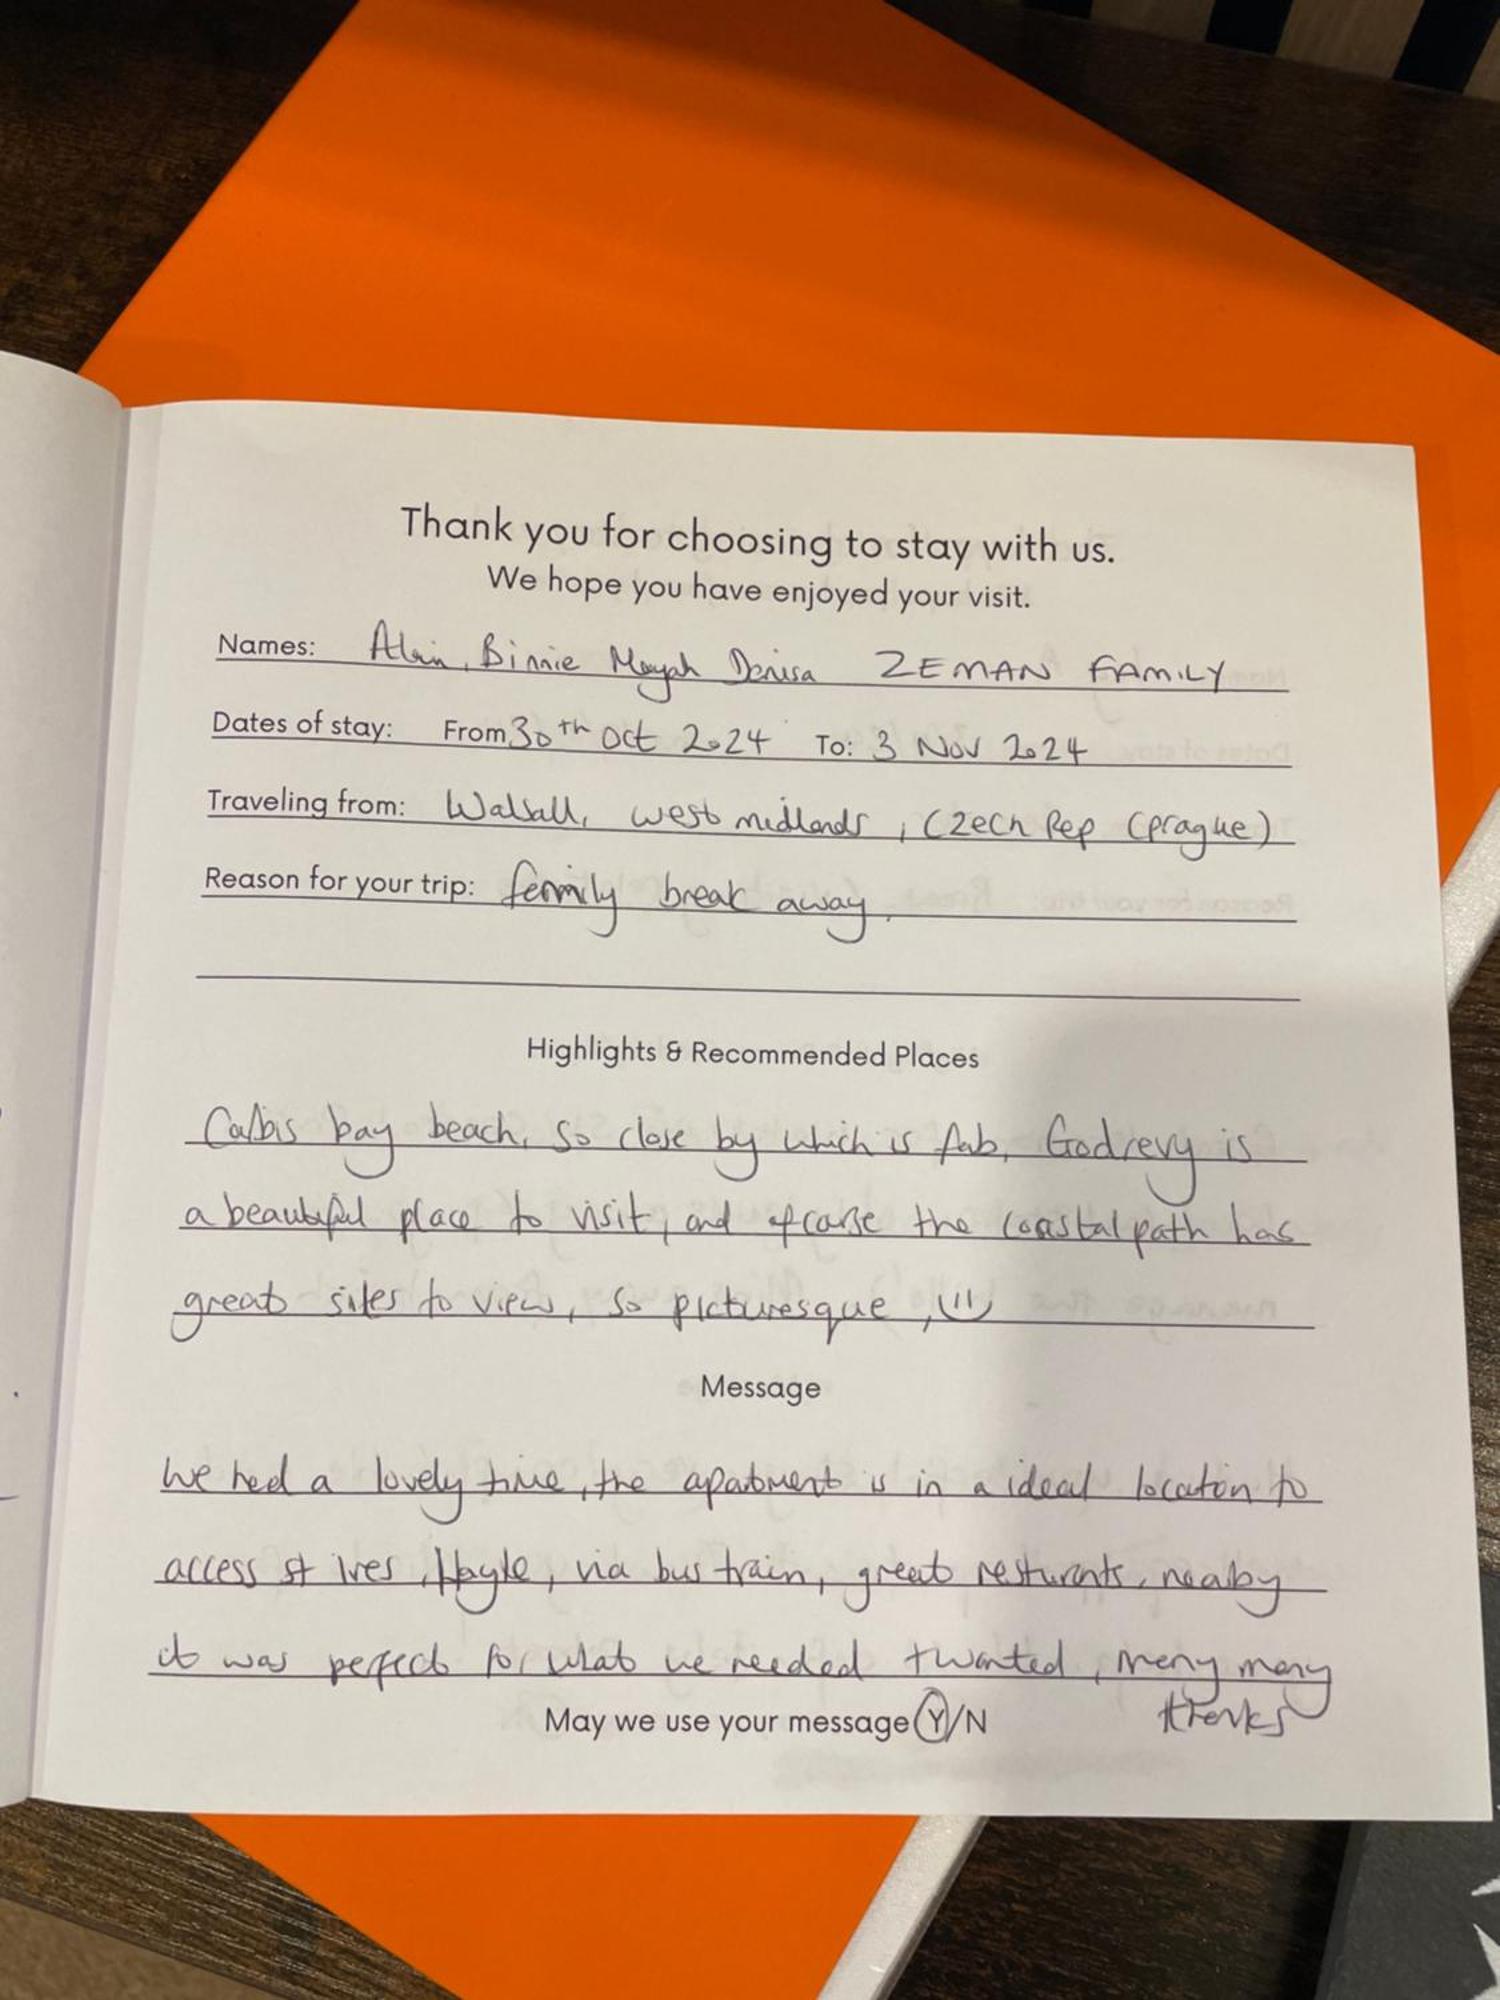 Thank you for choosing to stay with us.
We hope you have enjoyed your visit.
Names: Alain, Binnie Mayah Denisa ZEMAN FAMILY
Dates of stay: From 30th Oct 2024 To: 3 Nov 2024
Traveling from: Walsall, west midlands, Czech Rep (prague)
Reason for your trip: family break away.
Highlights & Recommended Places
Calbis bay beach, so close by which is fab, Godrevy is
a beautiful place to visit, and ofcorse the coastal path has
great sites to view, so picturesque,
Message
We had a lovely time, the apatment is in a ideal location to
access st ives, Hayle, via bus train, great resturants, neaby
it was perfect for what we needed + wanted, many many
thanks
May we use your message Y/N